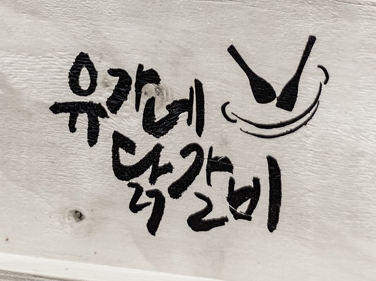 유가네
닭갈비